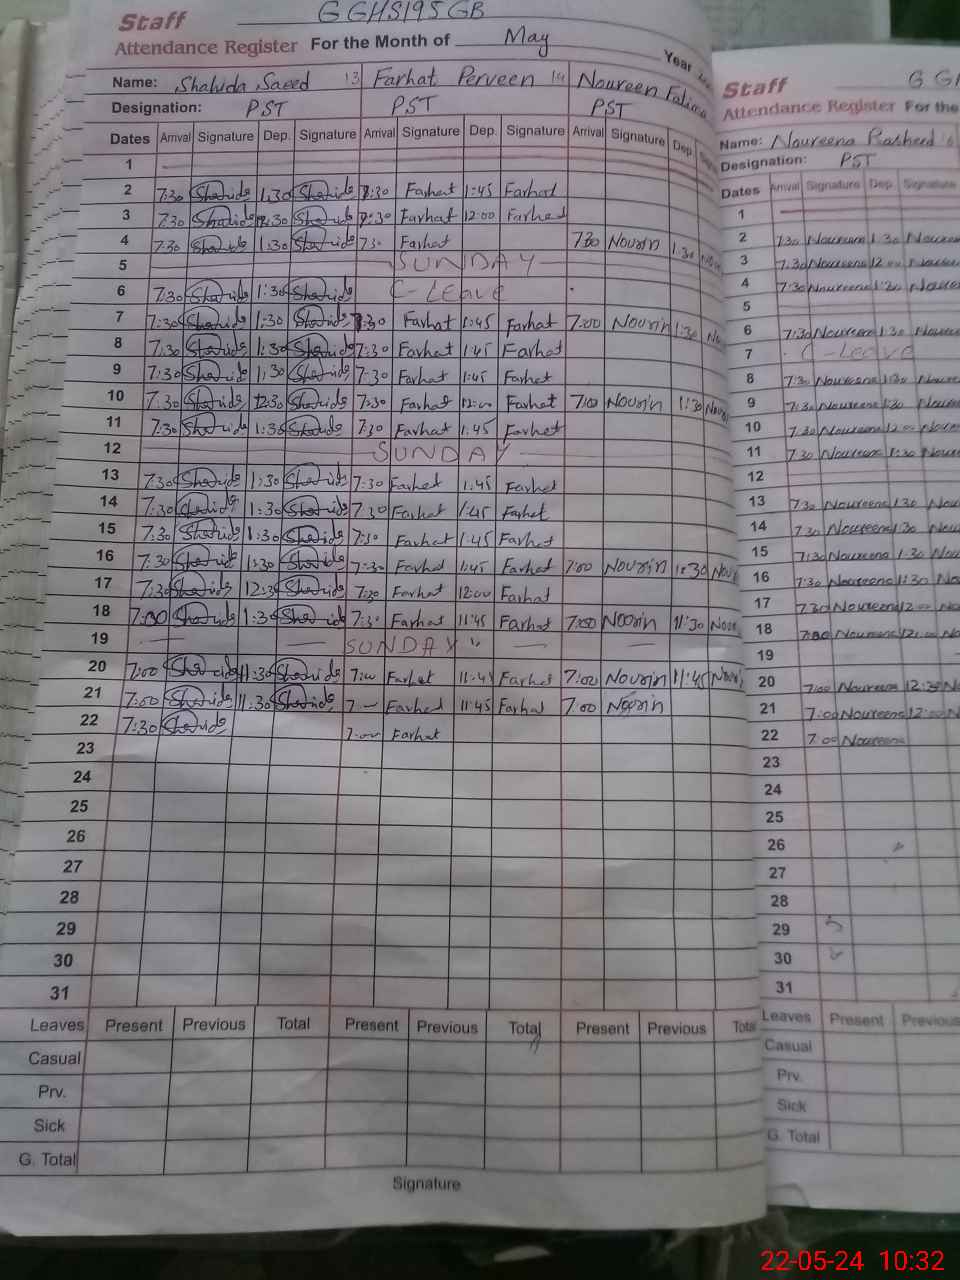 Staff GGHS195GB
Attendance Register For the Month of May Year
Name: Shahida Saeed 13 Farhat Perveen 14 Noureen Fatima
Designation: PST PST PST
Dates Arrival Signature Dep. Signature Arrival Signature Dep. Signature Arrival Signature Dep.
1
2 7:30 Shahida 1:30 Shahida 7:30 Farhat 1:45 Farhat
3 7:30 Shahida 12:30 Shahida 7:30 Farhat 12:00 Farhat
4 7:30 Shahida 1:30 Shahida 7:30 Farhat 730 Nourin 1:30
5 SUNDAY
6 7:30 Shahida 1:30 Shahida C-Leave
7 7:30 Shahida 1:30 Shahida 7:30 Farhat 1:45 Farhat 7:00 Nourin 1:30
8 7:30 Shahida 1:30 Shahida 7:30 Farhat 1:45 Farhat
9 7:30 Shahida 1:30 Shahida 7:30 Farhat 1:45 Farhat
10 7:30 Shahida 12:30 Shahida 7:30 Farhat 12:00 Farhat 7:00 Nourin 11:30
11 7:30 Shahida 1:30 Shahida 7:30 Farhat 1:45 Farhat
12 SUNDAY
13 7:30 Shahida 1:30 Shahida 7:30 Farhat 1:45 Farhat
14 7:30 Shahida 1:30 Shahida 7:30 Farhat 1:45 Farhat
15 7:30 Shahida 1:30 Shahida 7:30 Farhat 1:45 Farhat
16 7:30 Shahida 1:30 Shahida 7:30 Farhat 1:45 Farhat 7:00 Nourin 11:30
17 7:30 Shahida 12:30 Shahida 7:30 Farhat 12:00 Farhat
18 7:00 Shahida 1:30 Shahida 7:30 Farhat 11:45 Farhat 7:00 Noorin 11:30
19 SUNDAY
20 7:00 Shahida 11:30 Shahida 7:00 Farhat 11:45 Farhat 7:00 Nourin 11:45
21 7:00 Shahida 11:30 Shahida 7 Farhat 11:45 Farhat 7:00 Noorin
22 7:30 Shahida 7:00 Farhat
23
24
25
26
27
28
29
30
31
Leaves Present Previous Total Present Previous Total Present Previous Total
Casual
Prv.
Sick
G. Total
Signature
Staff
Attendance Register For the
Name: Noureena Rasheed
Designation: PST
Dates Arrival Signature Dep. Signature
1
2 7:30 Noureena 1:30
3 7:30 Noureena 12:00
4 7:30 Noureena 1:30
5
6 7:30 Noureena 1:30
7 C-Leave
8 7:30 Noureena 1:30
9 7:30 Noureena 1:30
10 7:30 Noureena 12:00
11 7:30 Noureena 1:30
12
13 7:30 Noureena 1:30
14 7:30 Noureena 1:30
15 7:30 Noureena 1:30
16 7:30 Noureena 1:30
17 7:30 Noureena 12:00
18 7:00 Noureena 12:00
19
20 7:00 Noureena 12:30
21 7:00 Noureena 12:00
22 7:00 Noureena
23
24
25
26
27
28
29
30
31
Leaves Present Previous
Casual
Prv.
Sick
G. Total
22-05-24 10:32